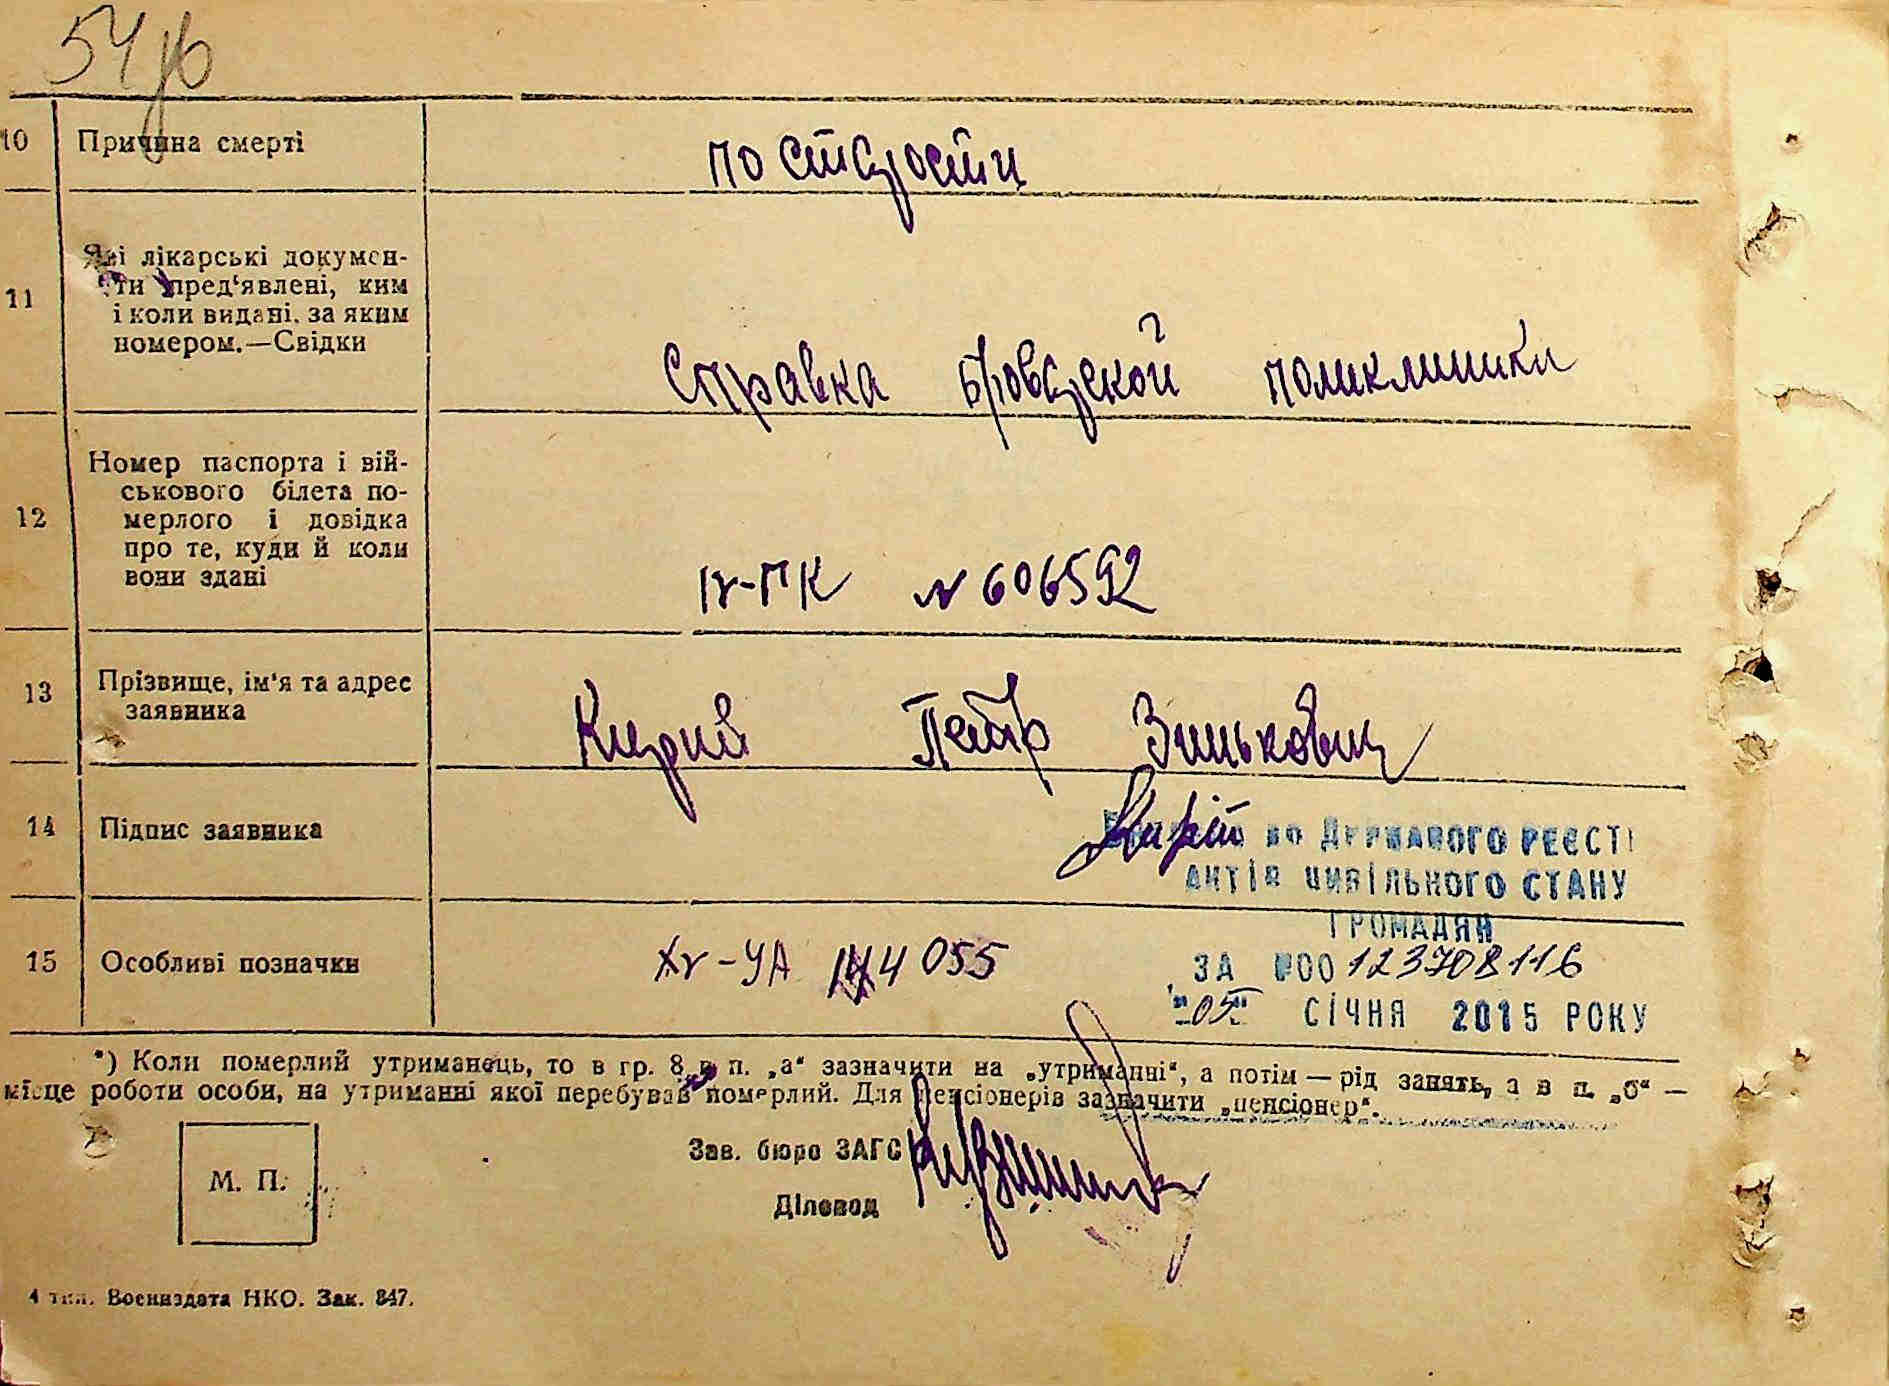 10 Причина смерті
по старости
11 Які лікарські докумен-
ти пред‘явлені, ким
і коли видані, за яким
номером.—Свідки
Справка броварской поликлиники
12 Номер паспорта і вій-
ськового білета по-
мерлого і довідка
про те, куди й коли
вони здані
IV-ПК № 606592
13 Прізвище, ім‘я та адрес
заявника
Кирий Петр Зинькович
14 Підпис заявника
до Державного реєстр
актів цивільного стану
громадян
15 Особливі позначки
055
ЗА №00123708116
"05" СІЧНЯ 2015 РОКУ
*) Коли померлий утриманець, то в гр. 8 в п. „а“ зазначити на „утриманні“, а потім — рід занять, а в п. „б“ —
місце роботи особи, на утриманні якої перебував померлий. Для пенсіонерів зазначити „пенсіонер“.
Зав. бюро ЗАГС
М. П.
Діловод
4 тип. Воениздата НКО. Зак. 847.